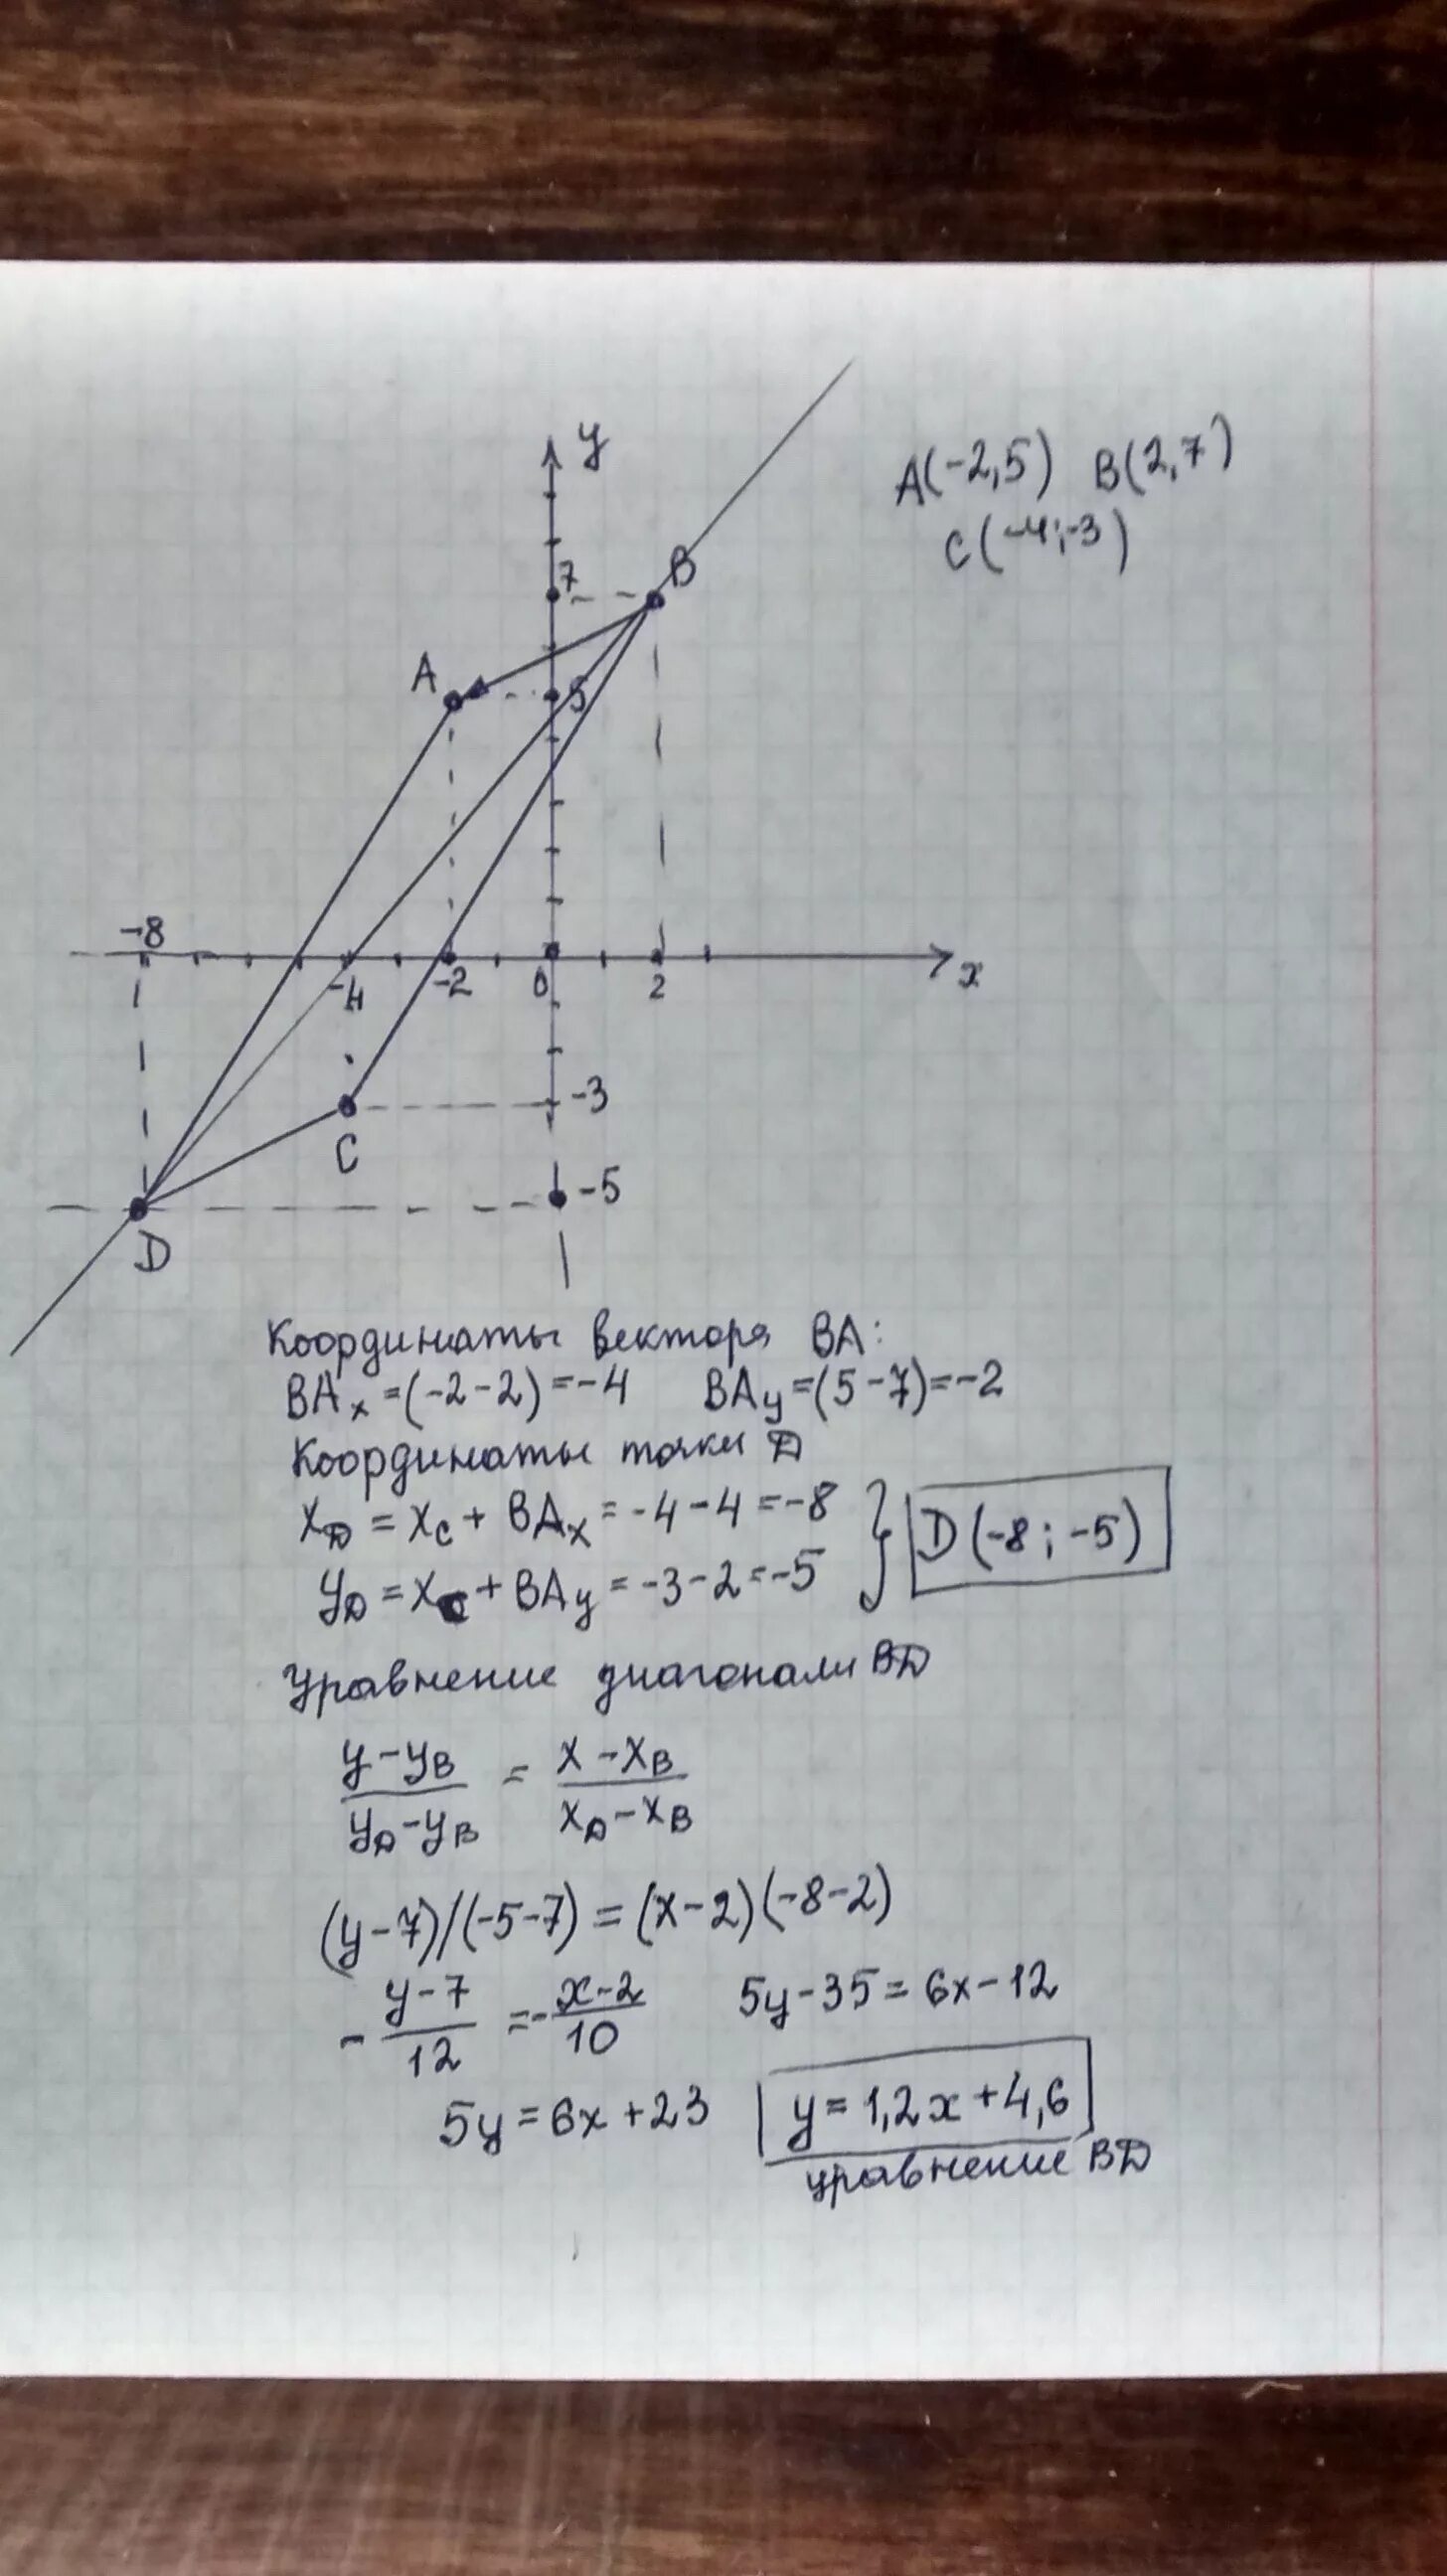 y
A(-2,5) B(2,7)
C(-4;-3)
7 B
A
5
-8
-4 -2 0 2 x
-3
C
-5
D
Координаты вектора BA:
BAx=(-2-2)=-4 BAy=(5-7)=-2
Координаты точки D
xD = xC + BAx = -4-4=-8 } D(-8;-5)
yD = xC + BAy = -3-2=-5
Уравнение диагонали BD
(y-yB)/(yD-yB) = (x-xB)/(xD-xB)
(y-7)/(-5-7) = (x-2)(-8-2)
-(y-7)/12 = -(x-2)/10 5y-35=6x-12
5y=6x+23 y=1,2x+4,6
уравнение BD